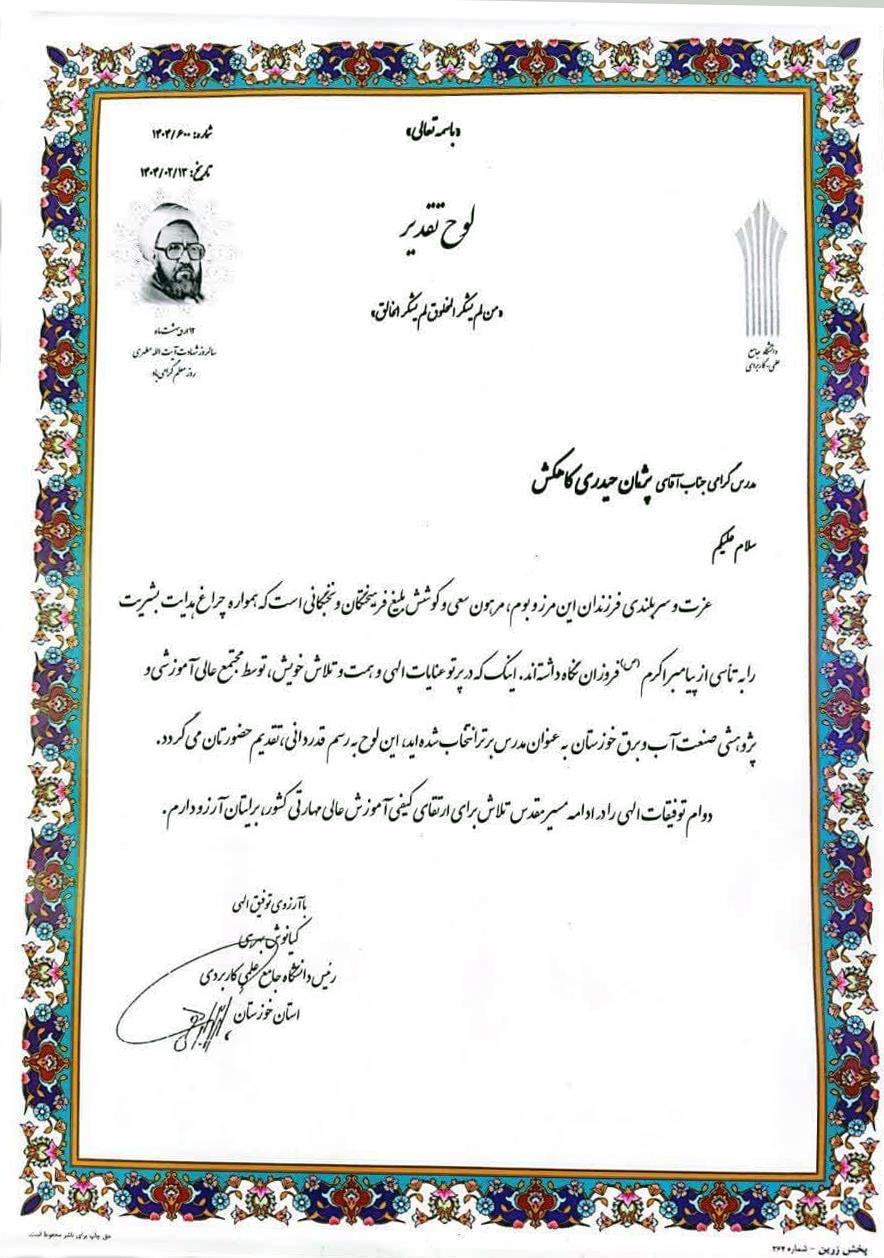 «باسمه تعالی»
شماره: ۱۴۰۴/۶۰۰
تاریخ: ۱۴۰۴/۰۲/۱۳
لوح تقدیر
«من لم یشکر المخلوق لم یشکر الخالق»
دانشگاه جامع
علمی-کاربردی
۱۲ اردیبهشت ماه
سالروز شهادت آیت الله مطهری
روز معلم گرامی باد
مدرس گرامی جناب آقای پژمان حیدری کاهکش
سلام علیکم
عزت و سربلندی فرزندان این مرز و بوم، مرهون سعی و کوشش بلیغ فرهیختگان و نخبگانی است که همواره چراغ هدایت بشریت
را به تأسی از پیامبر اکرم (ص) فروزان نگاه داشته‌اند. اینک که در پرتو عنایات الهی و همت و تلاش خویش، توسط مجتمع عالی آموزشی و
پژوهشی صنعت آب و برق خوزستان به عنوان مدرس برتر انتخاب شده اید، این لوح به رسم قدردانی، تقدیم حضورتان می گردد.
دوام توفیقات الهی را در ادامه مسیر مقدس تلاش برای ارتقای کیفی آموزش عالی مهارتی کشور، برایتان آرزو دارم.
با آرزوی توفیق الهی
کیانوش
رئیس دانشگاه جامع علمی کاربردی
استان خوزستان
حق چاپ برای ناشر محفوظ است.
پخش زرین - شماره ۲۶۴